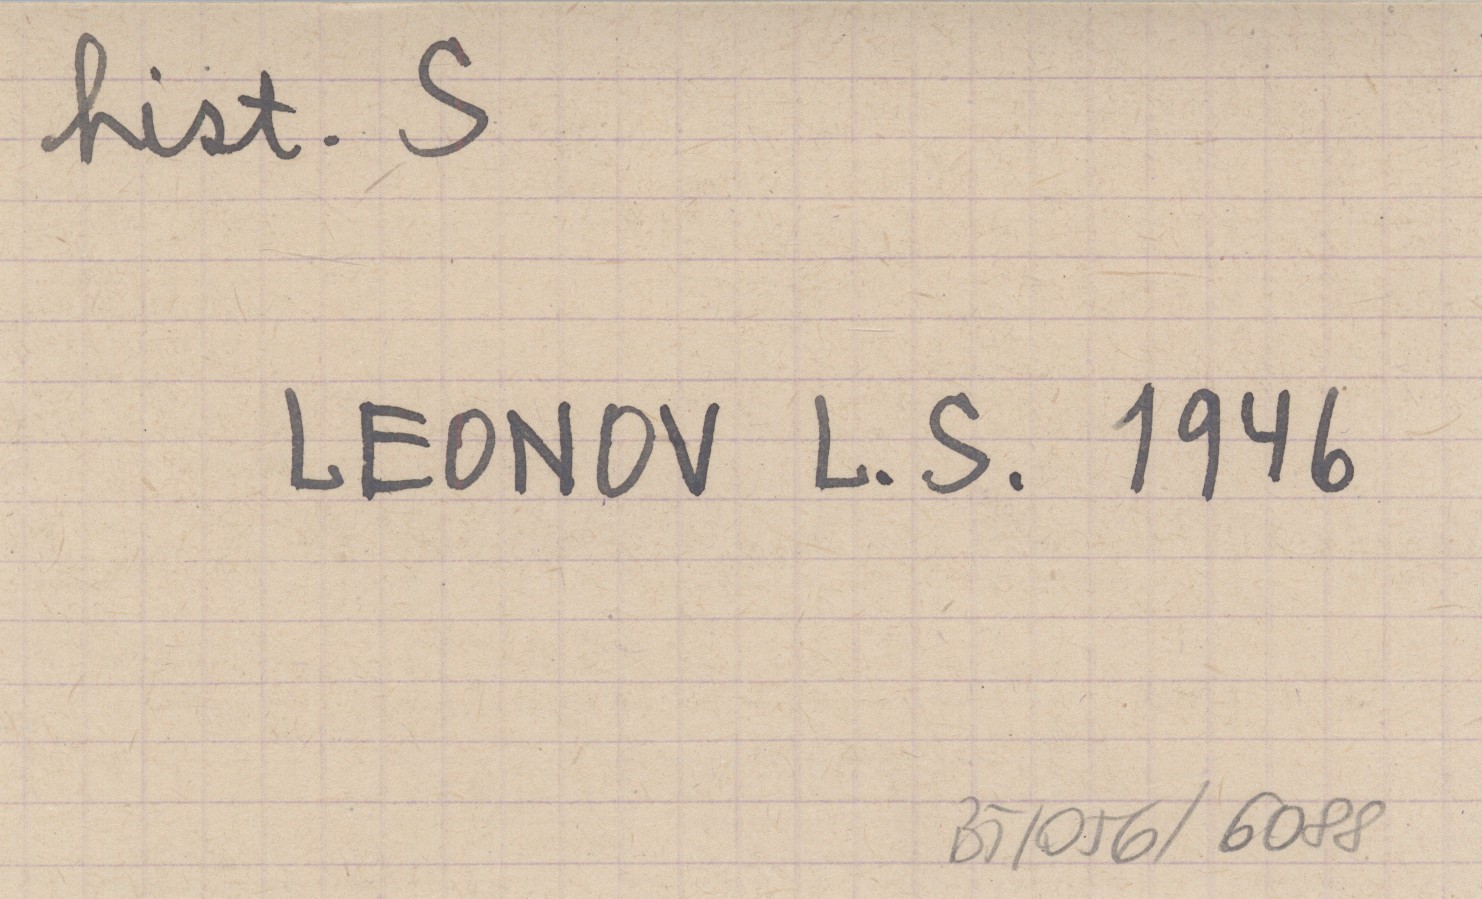 hist. S
LEONOV L. S. 1946
6088